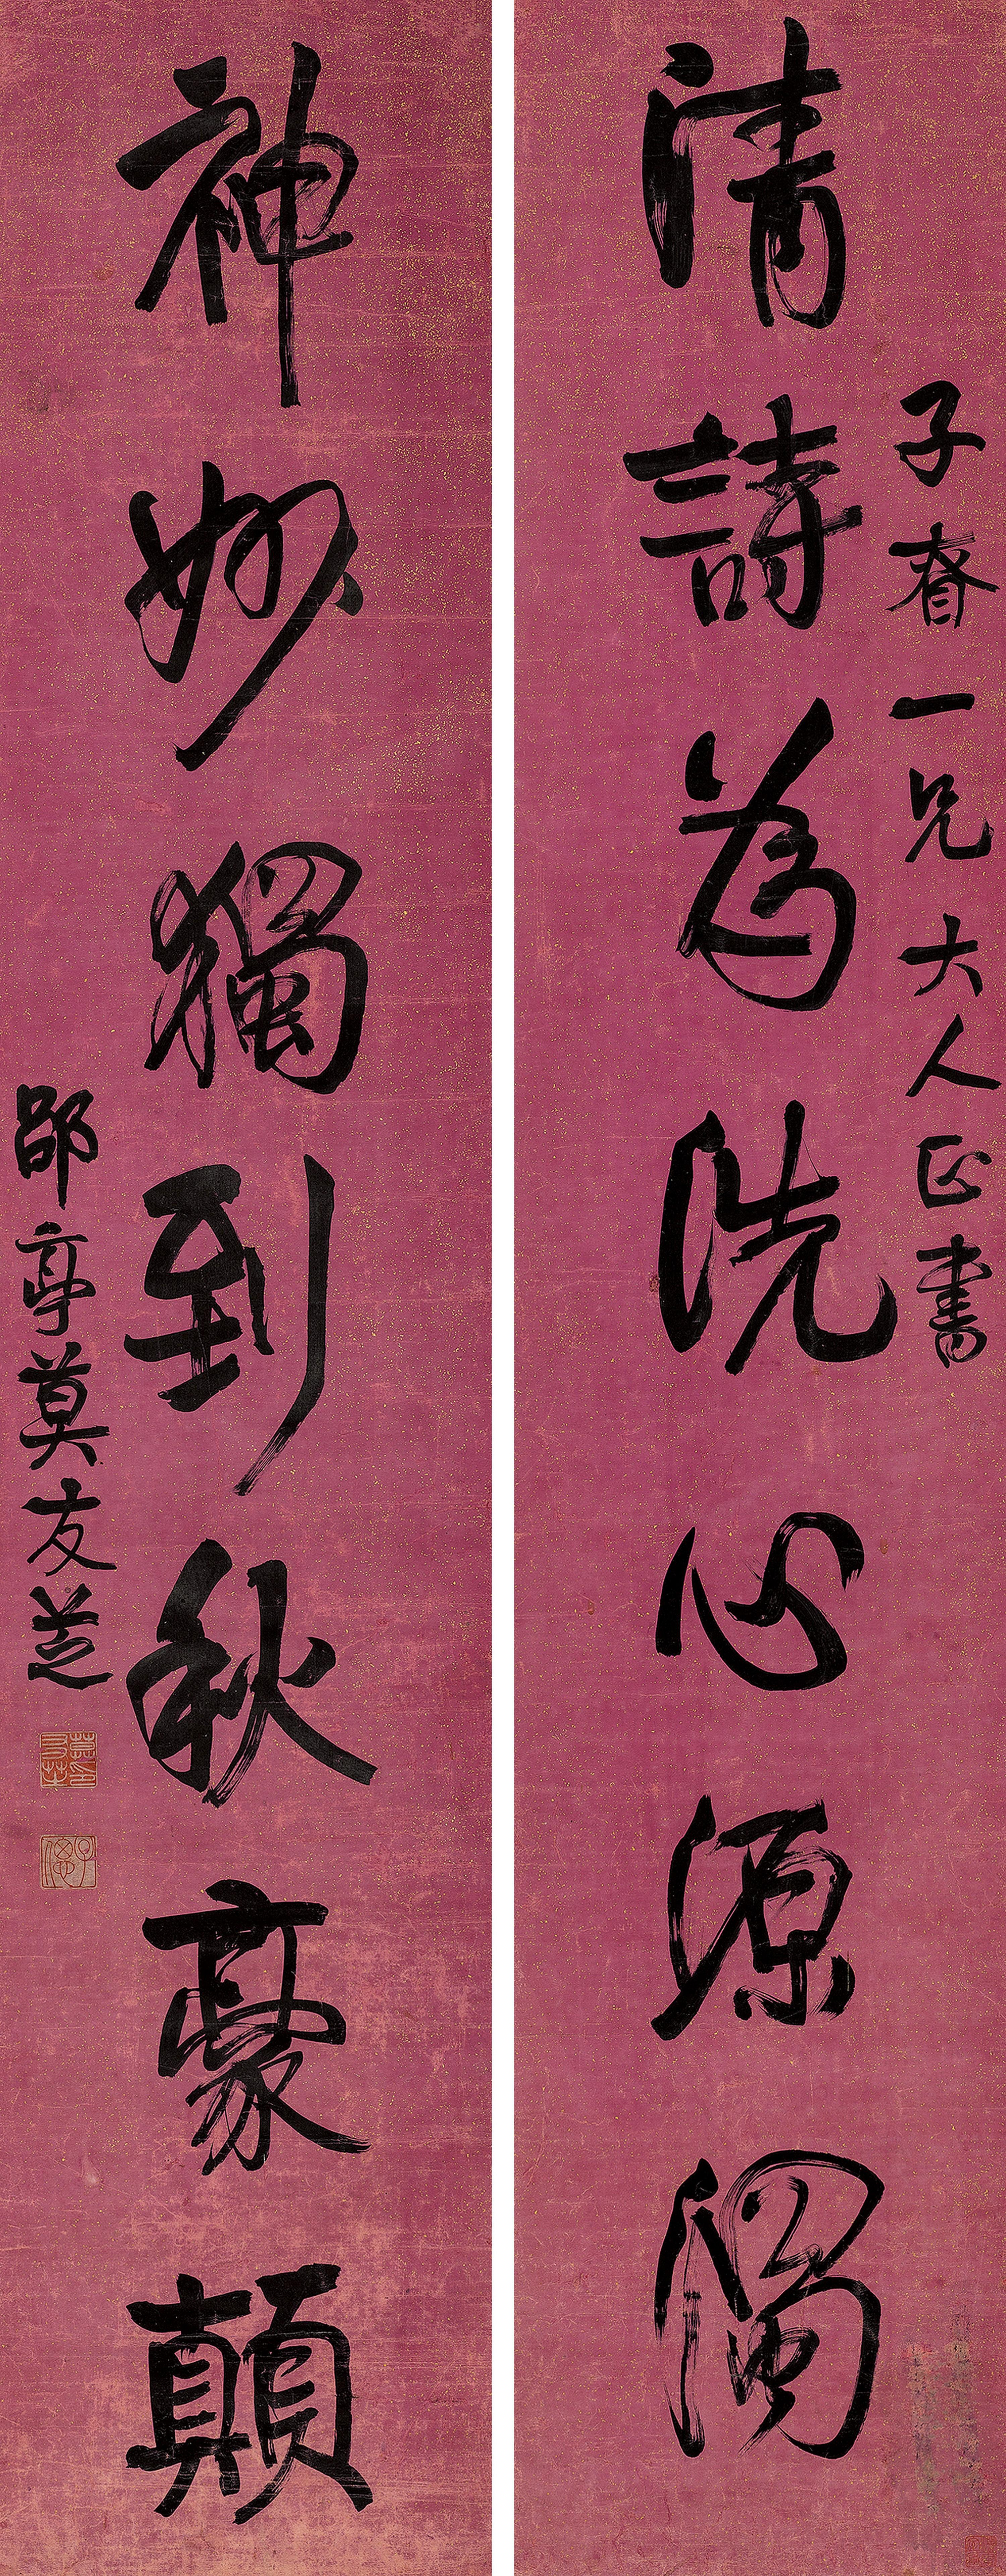 清詩為洗心源濁
子春一兄大人正書
神妙獨到秋豪顛
郘亭莫友芝